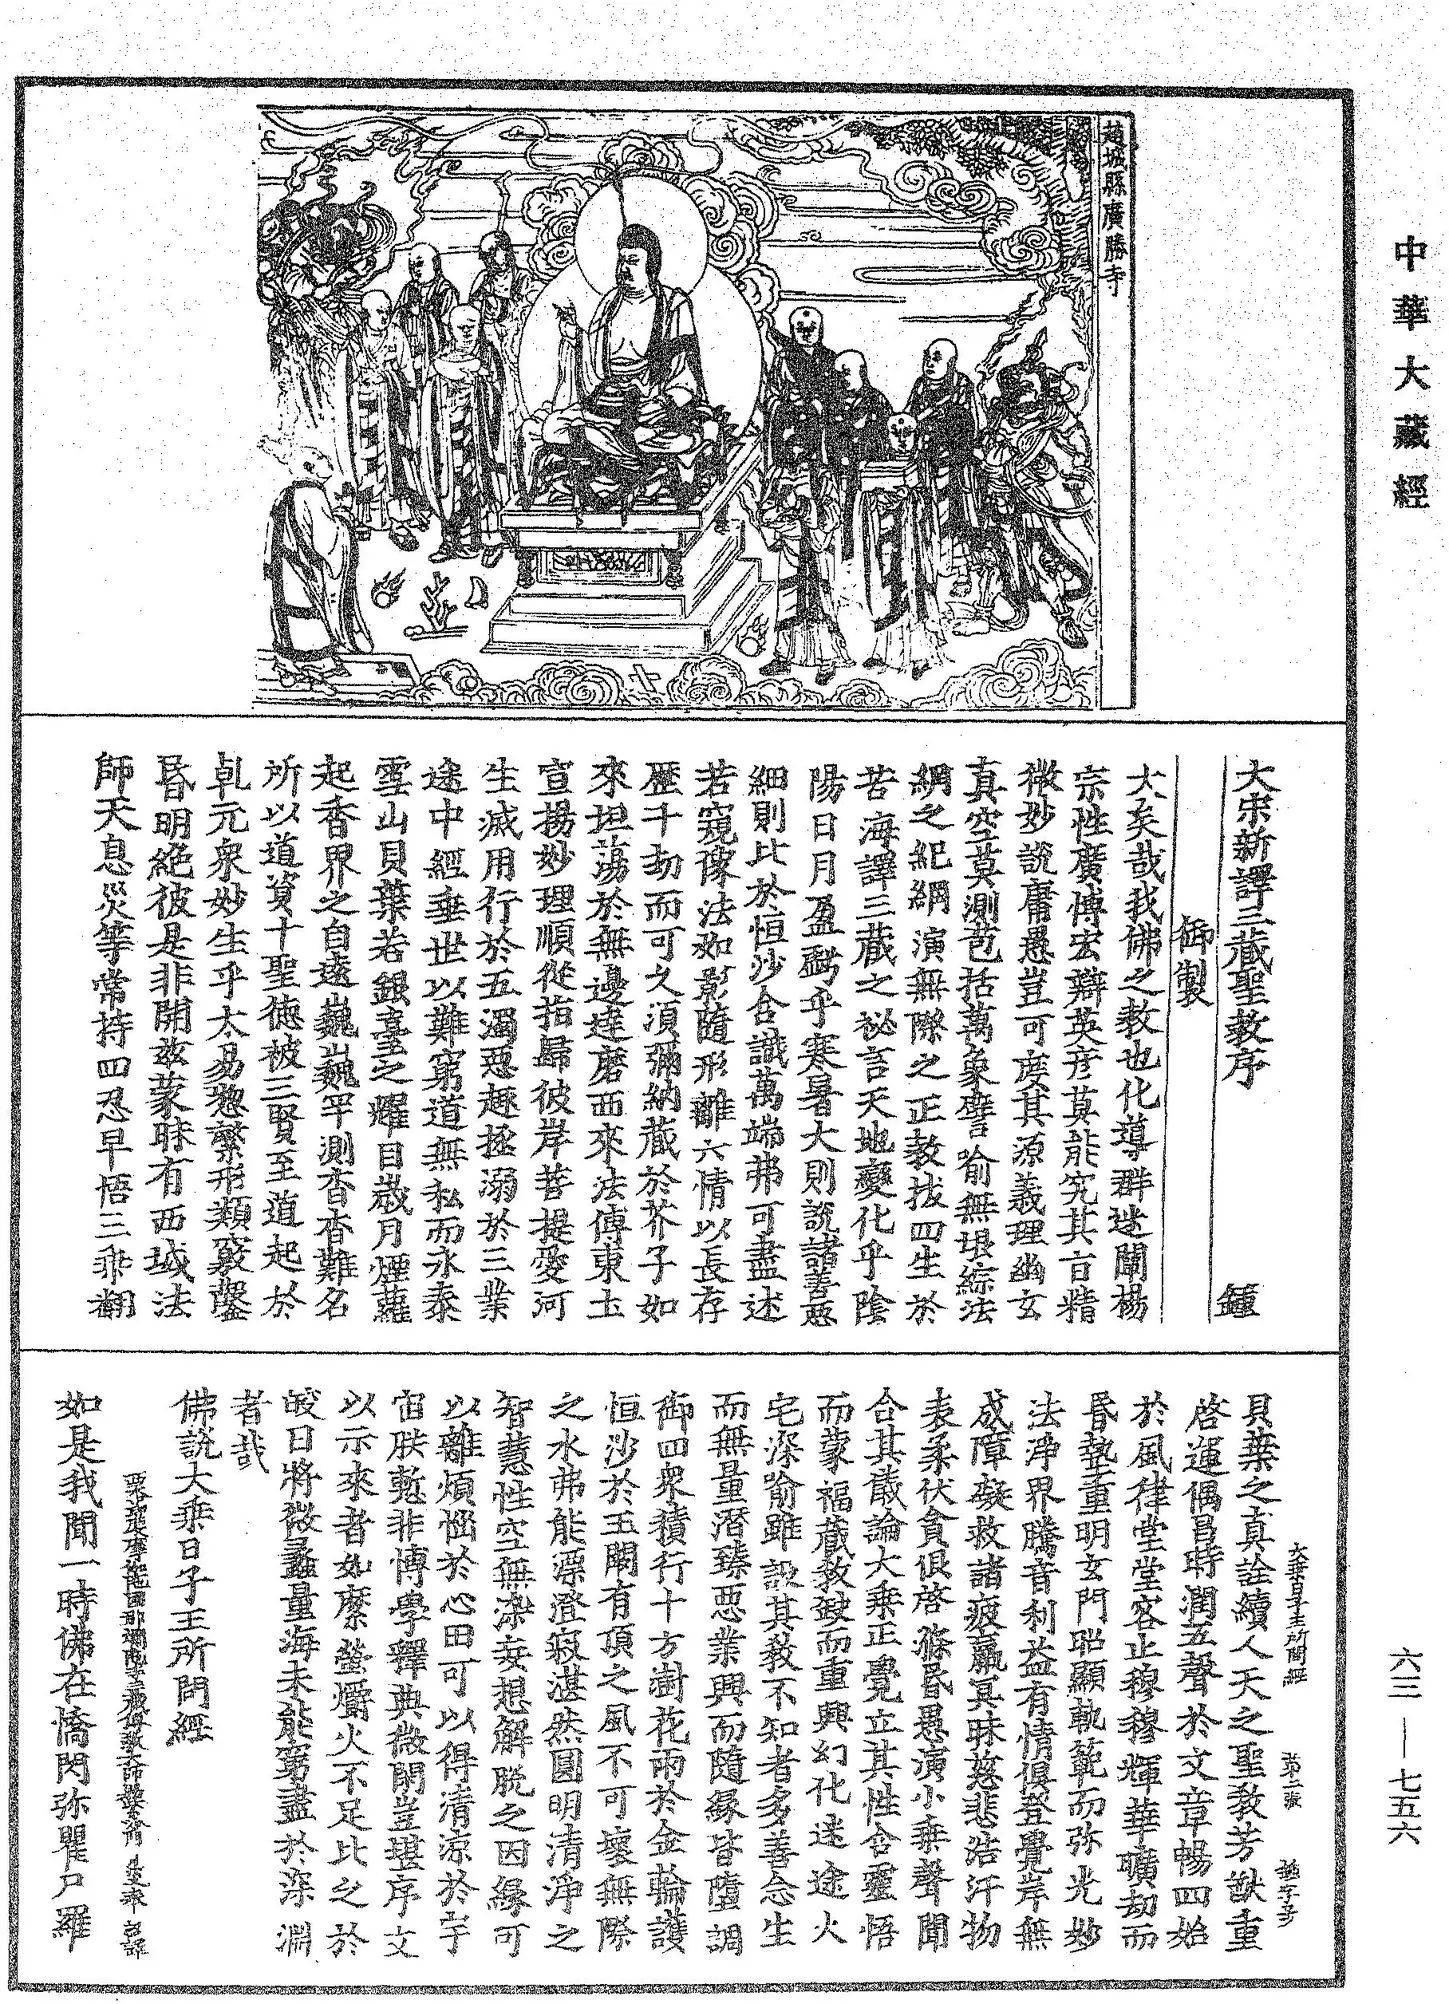 中華大藏經
趙城縣廣勝寺
大宋新譯三藏聖教序 鍾
御製
大矣哉我佛之教也化導群迷闡揚
宗性廣博宏辯英彥莫能究其旨精
微妙說庸愚豈可度其源義理幽玄
真空莫測苞括萬象譬喻無垠綜法
網之紀綱演無際之正教拔四生於
苦海譯三藏之祕言天地變化乎陰
陽日月盈虧乎寒暑大則說諸善惡
細則比於恒沙含識萬端弗可盡述
若窺像法如影隨形離六情以長存
歷千劫而可久須彌納藏於芥子如
來坦蕩於無邊達磨西來法傳東土
宣揚妙理順從指歸彼岸菩提愛河
生滅用行於五濁惡趣拯溺於三業
途中經垂世以難窮道無私而永泰
雪山貝葉若銀臺之耀目歲月煙蘿
起香界之自遠巍巍罕測杳杳難名
所以道資十聖德被三賢至道起於
乹元衆妙生乎太易揔繁形類竅鑿
昏明絕彼是非開兹蒙昧有西域法
師天息災等常持四忍早悟三乘翻
大乘日子王所問經 第二張 鍾字号
貝葉之真詮續人天之聖教芳猷重
啓運偶昌時潤五聲於文章暢四始
於風律堂堂容止穆穆輝華曠劫而
昏墊重明玄門昭顯軌範而弥光妙
法淨界騰音利益有情俱登覺岸無
成障礙救諸疲羸冥昧慈悲浩汗物
表柔伏貪佷啓滌昏愚演小乘聲聞
合其儀論大乘正覺立其性含靈悟
而蒙福藏教缺而重興幻化迷途火
宅深喻雖設其教不知者多善念生
而無量潛臻惡業興而隨緣皆墮調
御四衆積行十方澍花雨於金輪護
恒沙於玉闕有頂之風不可壞無際
之水弗能漂澄寂湛然圓明清淨之
智慧性空無染妄想解脫之因緣可
以離煩惱於心田可以得清涼於宇
宙朕慙非博學釋典微閑豈堪序文
以示來者如縻螢爝火不足比之於
皎日將微蠡量海未能窮盡於深淵
者哉
佛說大乘日子王所問經
如是我聞一時佛在憍閃弥瞿尸羅
六三—七五六